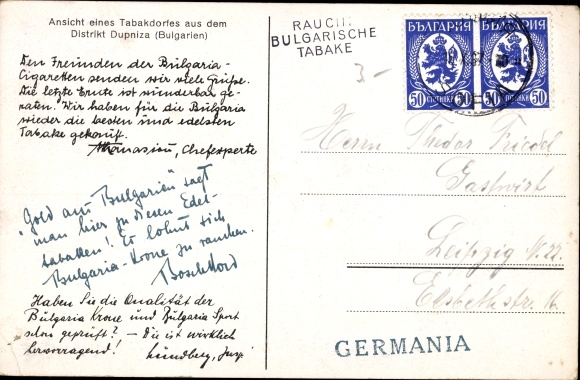 Ansicht eines Tabakdorfes aus dem
Distrikt Dupniza (Bulgarien)
Den Freunden der Bulgaria-
Cigaretten senden wir viele Grüße.
Die letzte Ernte ist wunderbar ge-
raten. Wir haben für die Bulgaria
wieder die besten und edelsten
Tabake gekauft.
Athanasiou, Chefexperte
"Gold aus Bulgarien" sagt
man hier zu diesen Edel-
tabaken! Es lohnt sich
Bulgaria-Krone zu rauchen.
Haben Sie die Qualität der
Bulgaria Krone und Bulgaria Sport
schon geprüft? - Die ist wirklich
hervorragend!
Lundberg,
RAUCHT
BULGARISCHE
TABAKE
3-
БЪЛГАРИЯ БЪЛГАРИЯ
50 СТОТИНКИ 50 50 СТОТИНКИ 50
Herrn Theodor Friedel
Gastwirt
Leipzig N. 22.
Elsbethstr. 16
GERMANIA